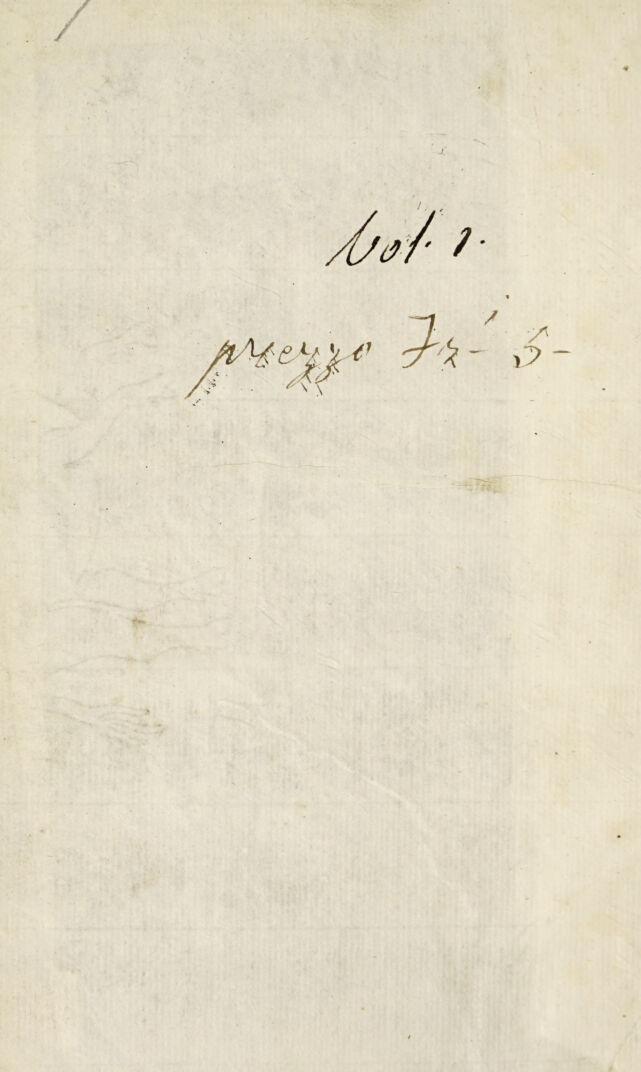 Vol. 1.
prezzo Fr- 5-